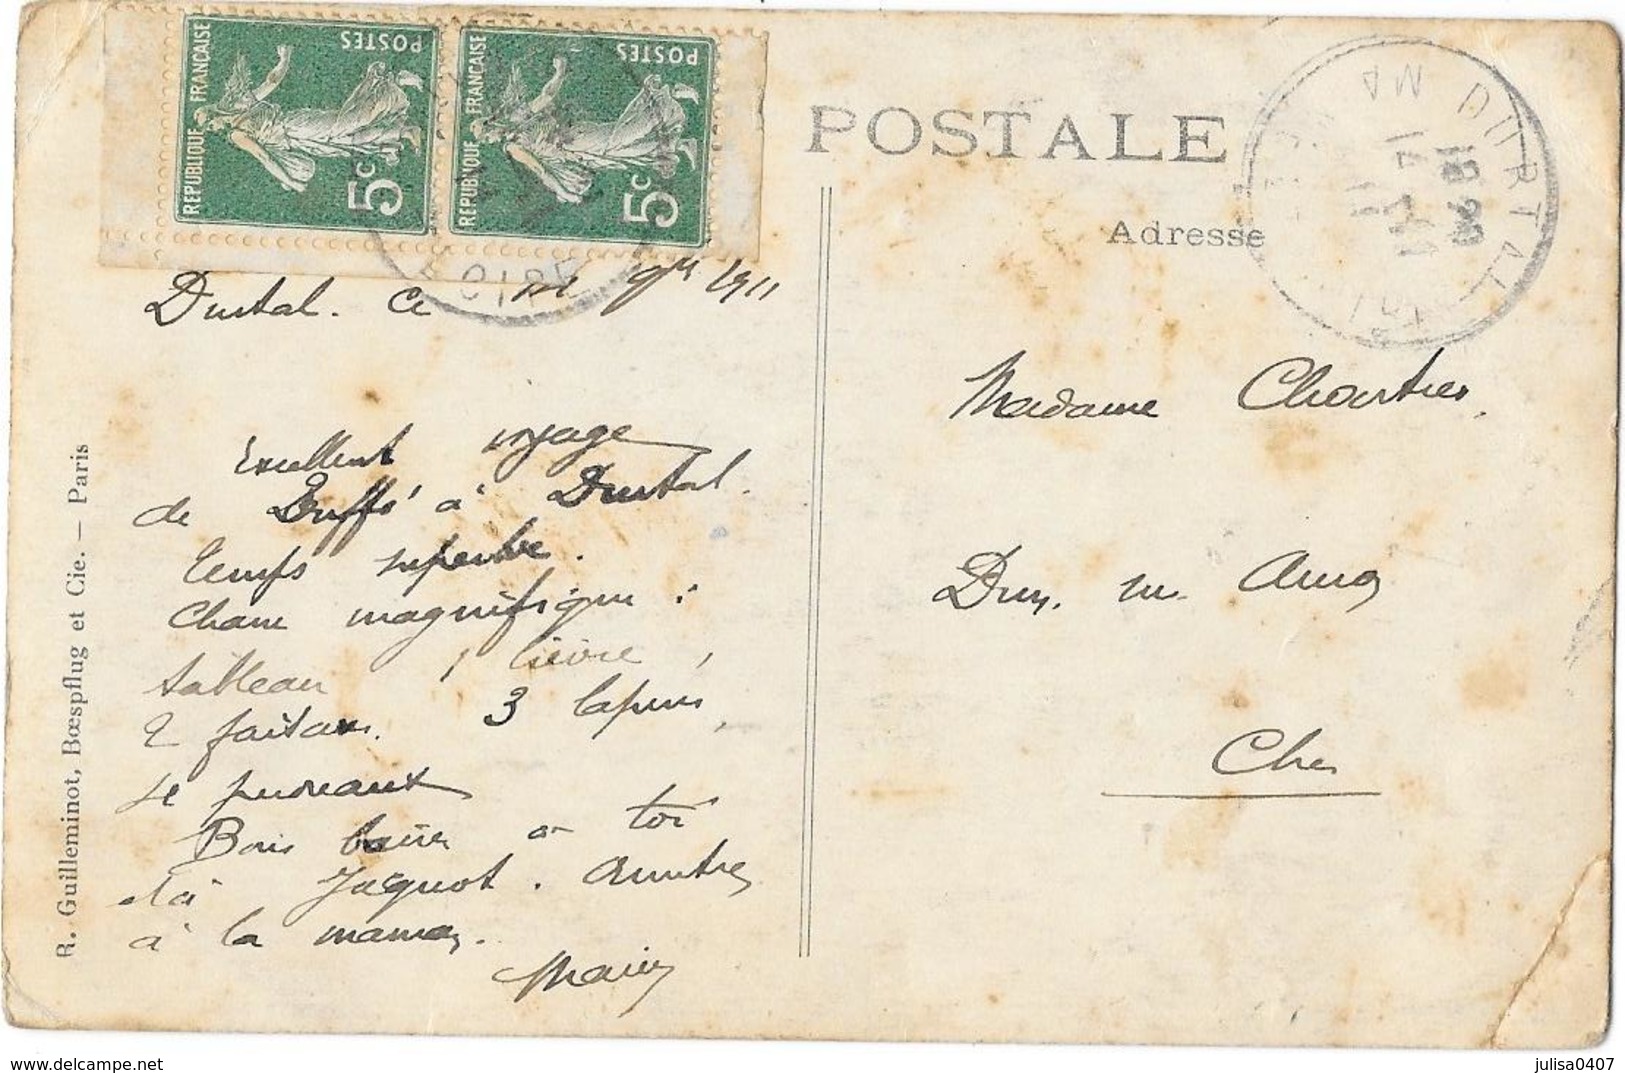 REPUBLIQUE FRANÇAISE
POSTES
5c
REPUBLIQUE FRANÇAISE
POSTES
5c
POSTALE
Adresse
DURTAL
18 30
14 -11
11
Durtal. Ce 9bre 1911
Excellent voyage
de à Durtal.
temps superbe.
Chasse magnifique :
tableau 1 lièvre,
2 faisans. 3 lapins,
Bons baisers à toi
et à Jacquot. Amitiés
à la maman.
Madame Chartier.
Dun. sur. Auron
Cher
R. Guilleminot, Bœspflug et Cie. — Paris
julisa0407
https://www.delcampe.net